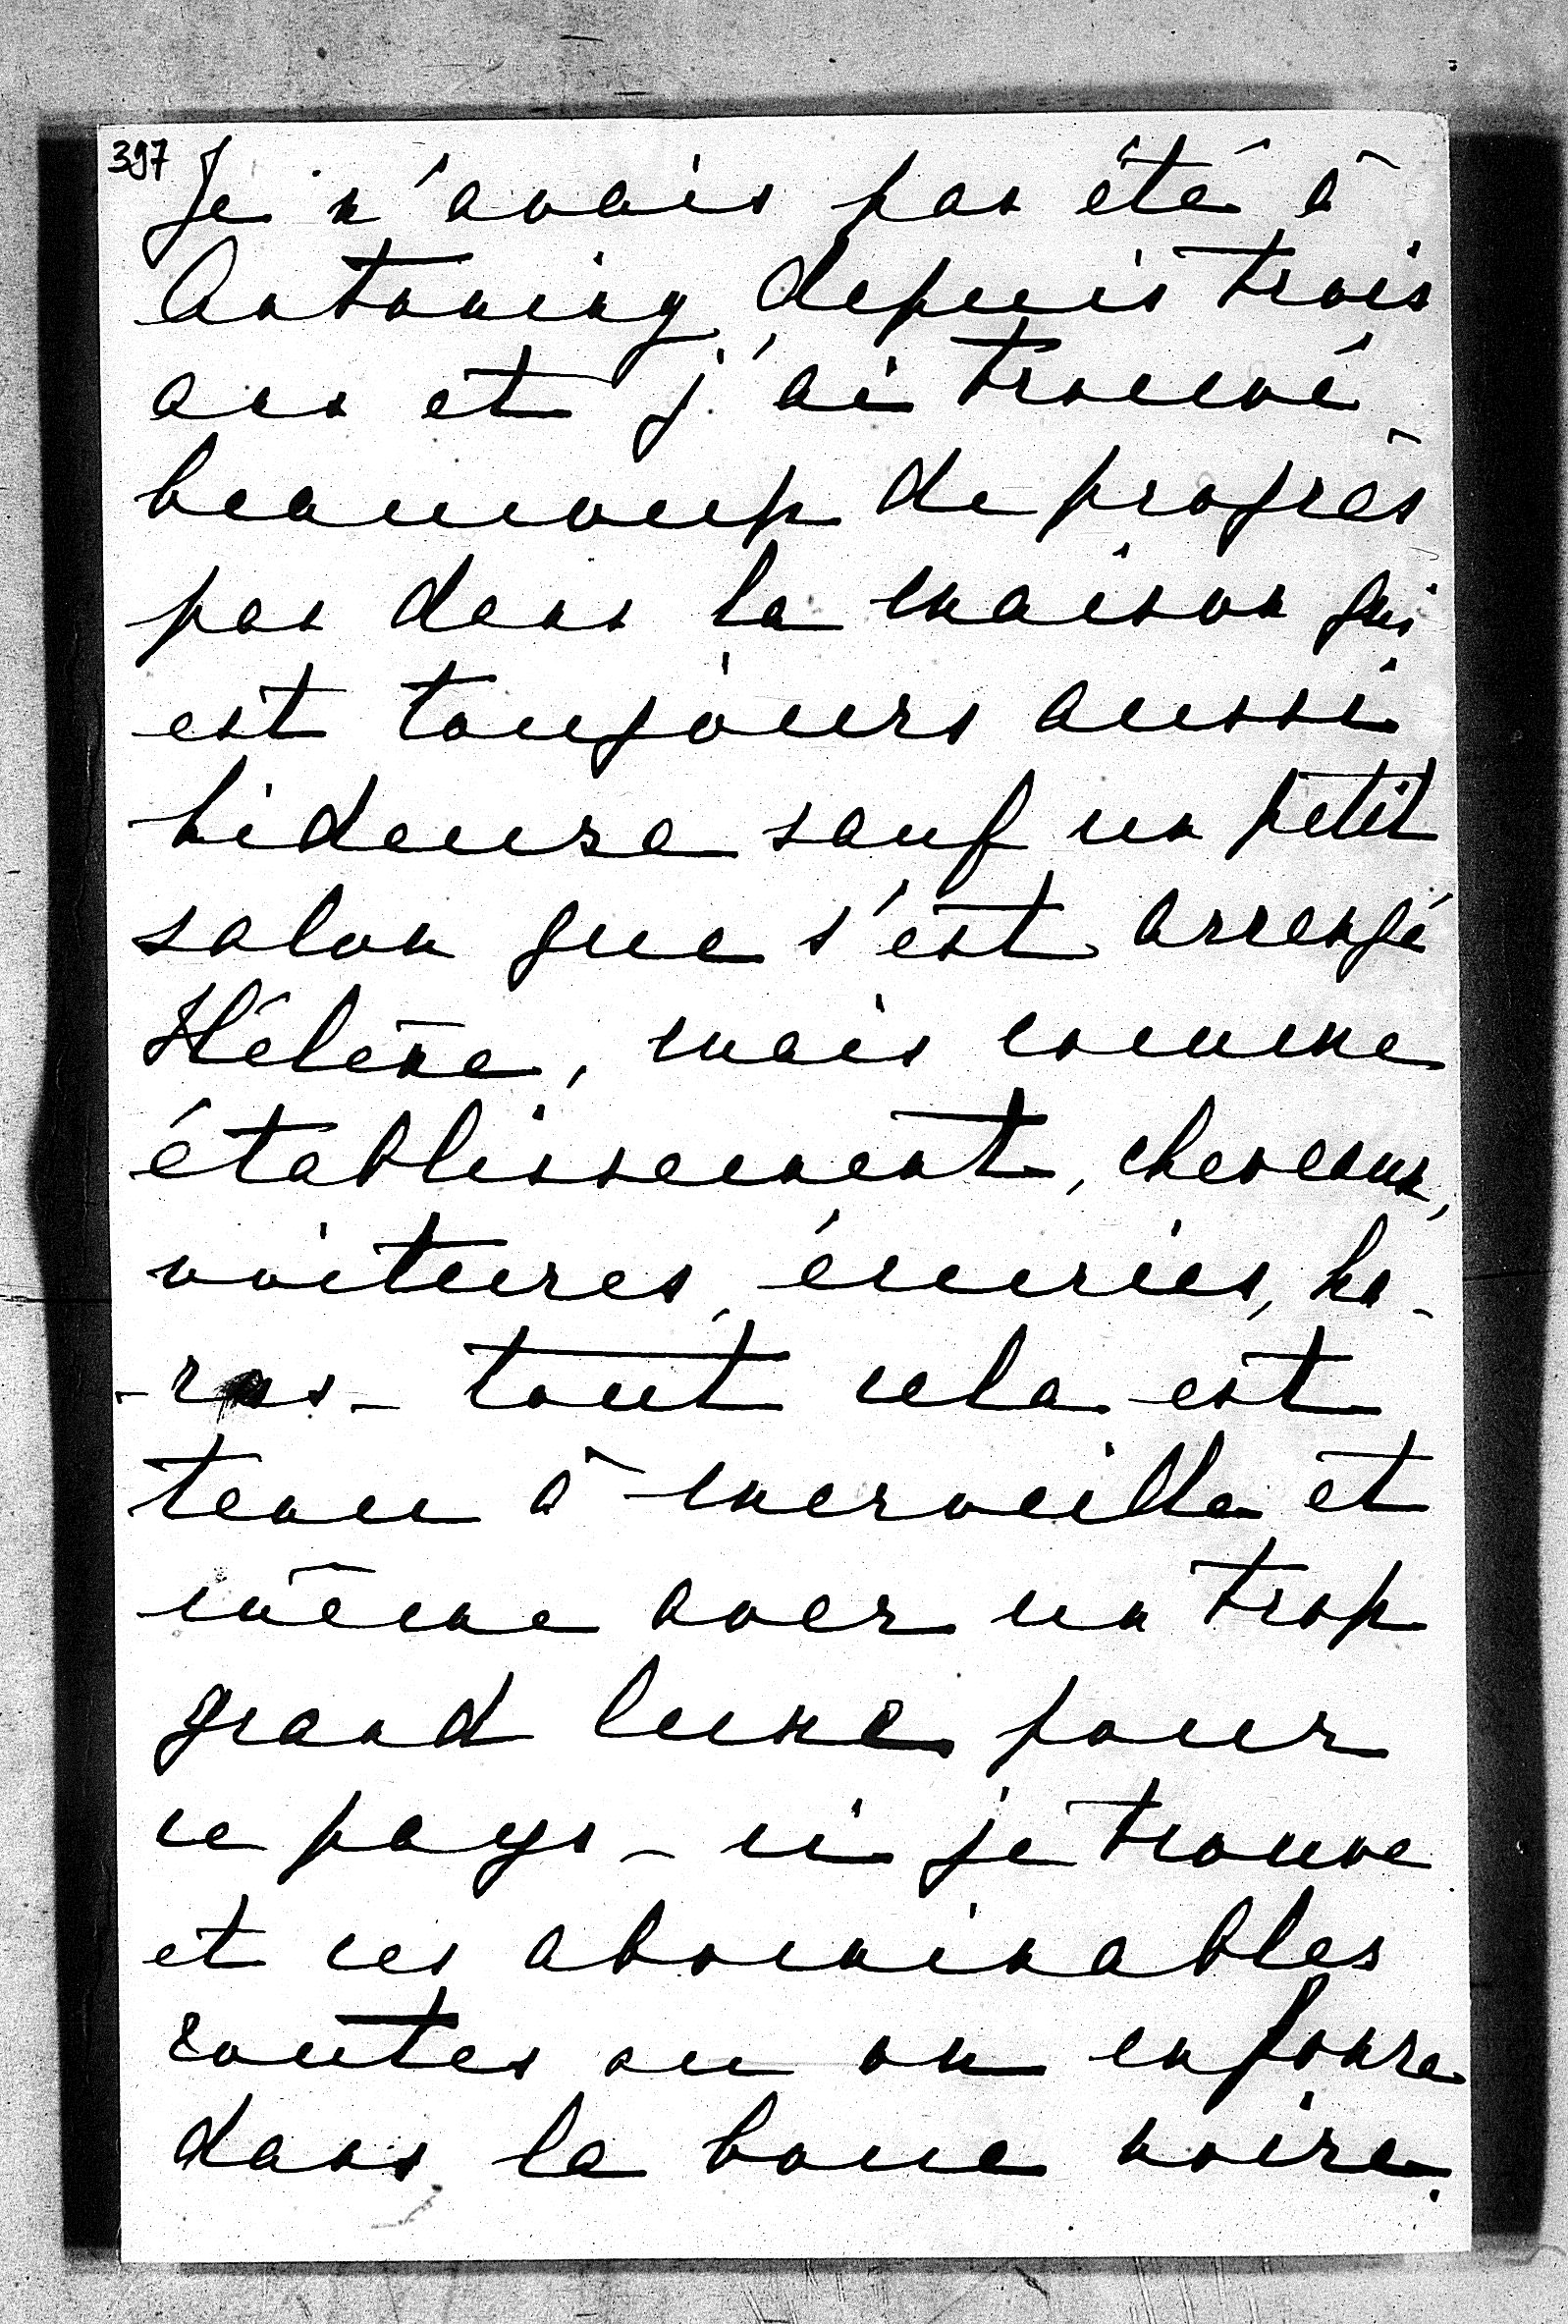 397 Je n'avais pas été à
Antoniny, depuis trois
ans et j'ai trouvé
beaucoup de progrès
pas dans la maison qui
est toujours aussi
hideuse sauf un petit
salon que s'est arrangé
Hélène, mais comme
établissement, chevaux,
voitures, écuries, ha-
-ras - tout cela est
tenu à merveille et
même avec un trop
grand luxe pour
ce pays - ci je trouve
et ces abominables
routes ou on enfonce
dans la boue noire.